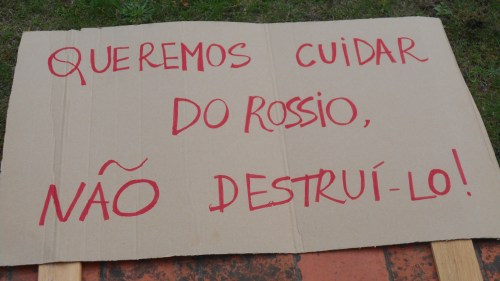 QUEREMOS CUIDAR
DO ROSSIO,
NÃO DESTRUÍ-LO!